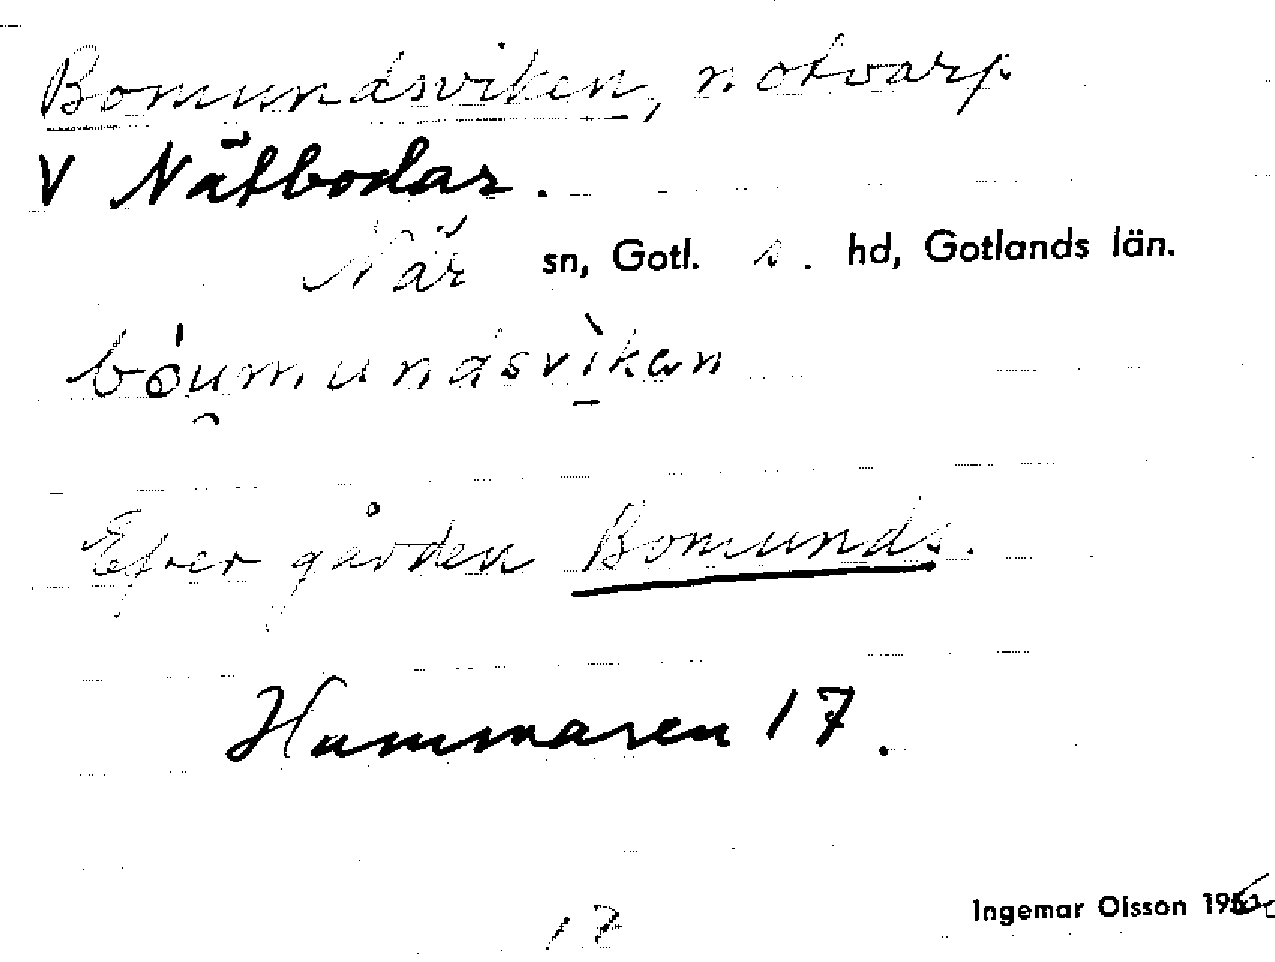 Bomundsviken, notvarp
V Nätbodar.
När sn, Gotl. s. hd, Gotlands län.
bóu̯mundsvìkən
Efter gården Bomunds.
Hammaren 17.
17
Ingemar Olsson